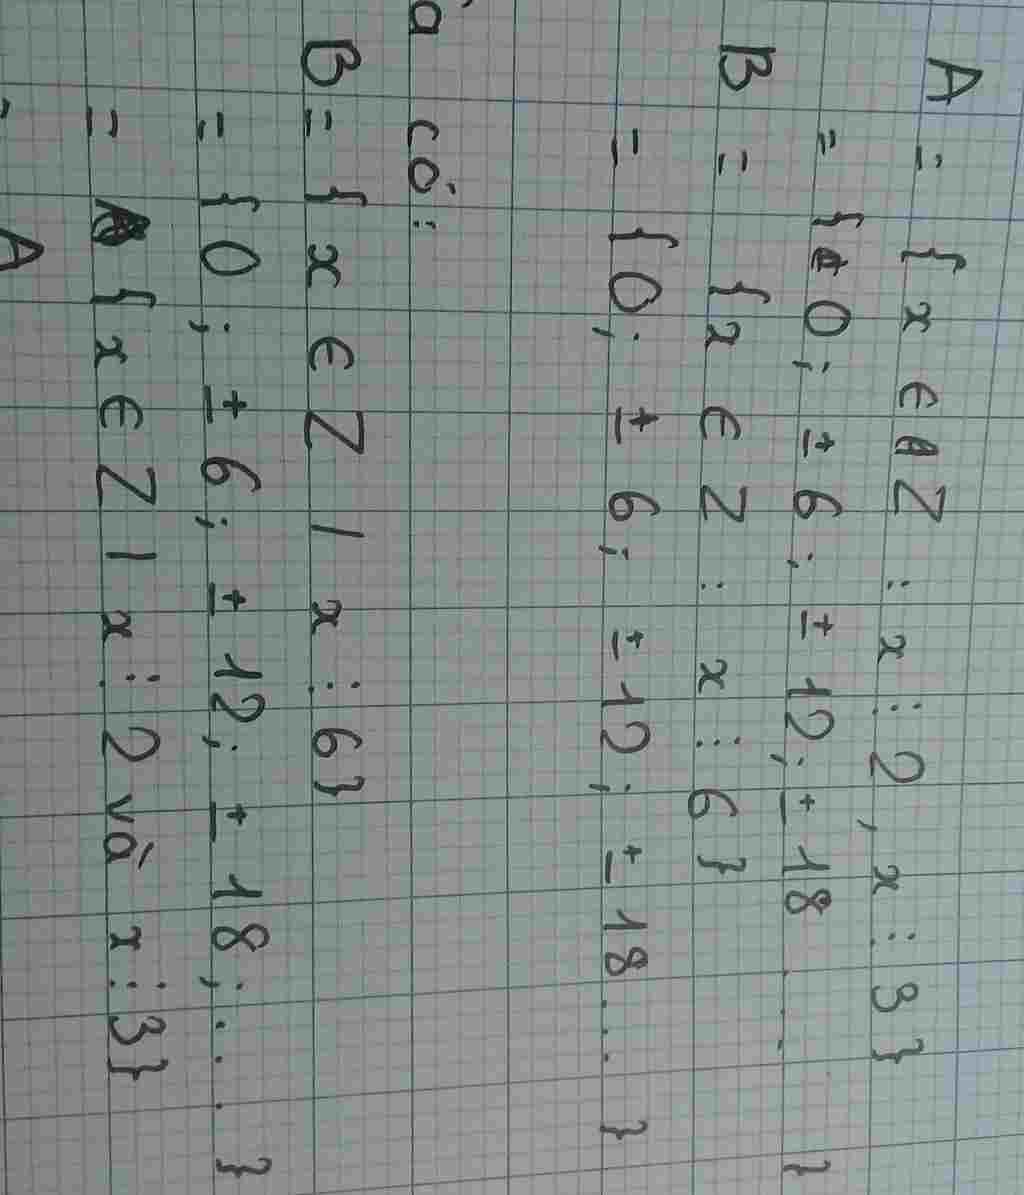 A = { x ∈ Z : x ⋮ 2 , x ⋮ 3}
= { 0; ± 6; ± 12; ± 18 ... }
B = { x ∈ Z : x ⋮ 6 }
= { 0; ± 6; ± 12; ± 18... }
a có:
B = { x ∈ Z | x ⋮ 6}
= { 0; ± 6; ± 12; ± 18; ... }
= { x ∈ Z | x ⋮ 2 và x ⋮ 3}
A